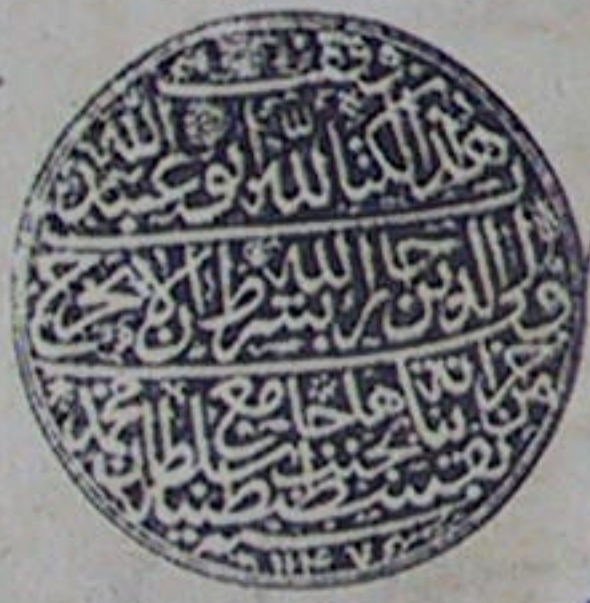 وقف
هذا الكتاب لله ابو عبد الله
ولي الدين جار الله بشرط ان لا يخرج
من خزانة بناها بجنب جامع سلطان محمد
بقسطنطينية ١١٤٧